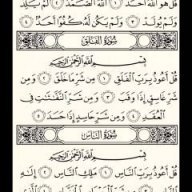 قُلْ هُوَ اللَّهُ أَحَدٌ ١ اللَّهُ الصَّمَدُ ٢ لَمْ يَلِدْ
وَلَمْ يُولَدْ ٣ وَلَمْ يَكُن لَّهُ كُفُوًا أَحَدٌ ٤
سُورَةُ الْفَلَقِ
بِسْمِ اللَّهِ الرَّحْمَٰنِ الرَّحِيمِ
قُلْ أَعُوذُ بِرَبِّ الْفَلَقِ ١ مِن شَرِّ مَا خَلَقَ ٢ وَمِن
شَرِّ غَاسِقٍ إِذَا وَقَبَ ٣ وَمِن شَرِّ النَّفَّاثَاتِ فِي
الْعُقَدِ ٤ وَمِن شَرِّ حَاسِدٍ إِذَا حَسَدَ ٥
سُورَةُ النَّاسِ
بِسْمِ اللَّهِ الرَّحْمَٰنِ الرَّحِيمِ
قُلْ أَعُوذُ بِرَبِّ النَّاسِ ١ مَلِكِ النَّاسِ ٢ إِلَٰهِ